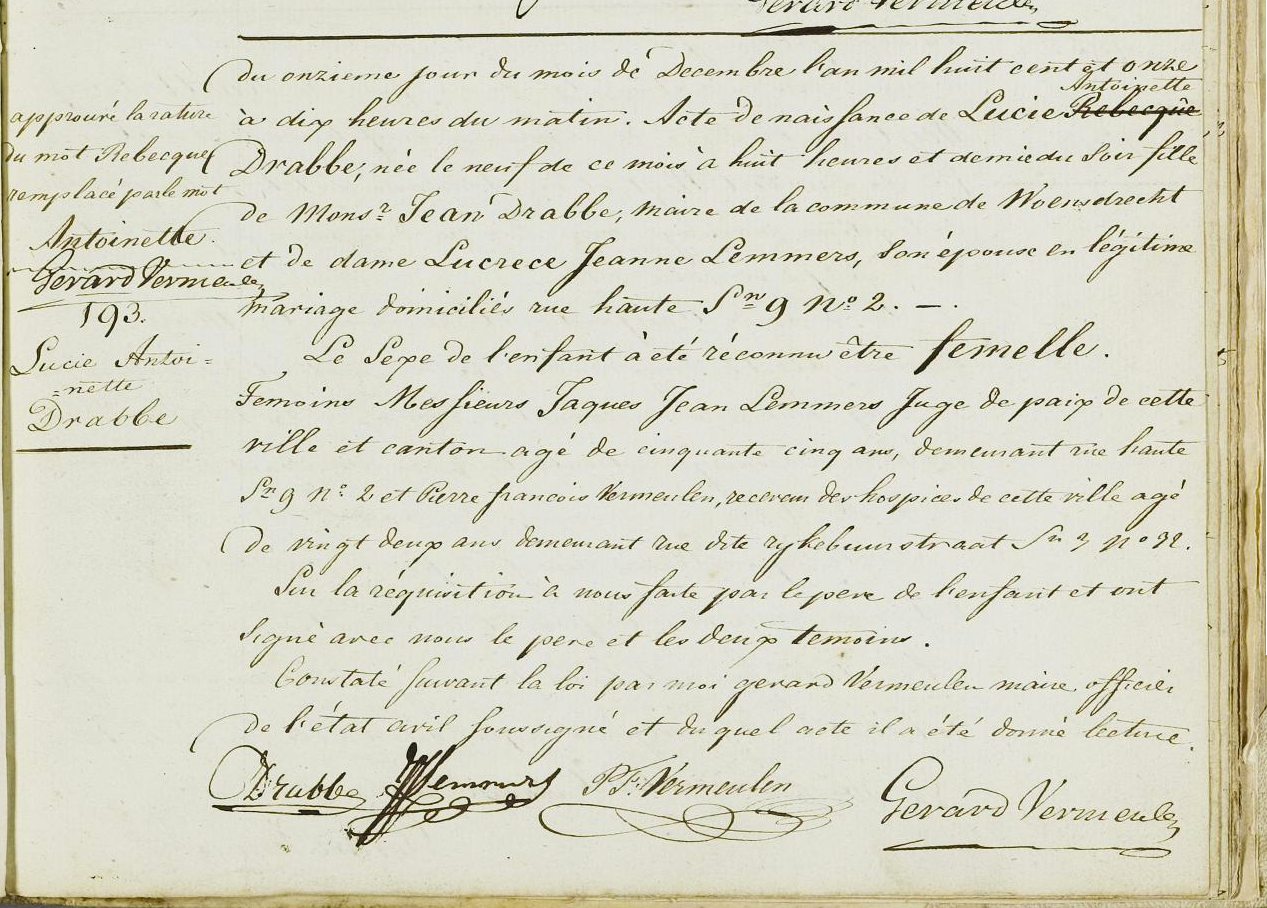 Gerard Vermeulen
du onzieme jour du mois de Decembre l'an mil huit cent et onze
Antoinette
à dix heures du matin. Acte de naissance de Lucie Rebecque
Drabbe, née le neuf de ce mois à huit heures et demie du Soir fille
de Monsr Jean Drabbe, maire de la commune de Woensdrecht
et de dame Lucrece Jeanne Lemmers, son épouse en légitime
mariage domiciliés rue haute Sn 9 No 2. — .
Le Sexe de l'enfant à été réconnu être femelle.
Temoins Messieurs Jaques Jean Lemmers Juge de paix de cette
ville et canton agé de cinquante cinq ans, demeurant rue haute
Sn 9 No 2 et Pierre francois Vermeulen, receveur des hospices de cette ville agé
de vingt deux ans demeurant rue dite rykebuurstraat Sn 3 No 32.
Sur la réquisition à nous faite par le pere de l'enfant et ont
signé avec nous le pere et les deux temoins.
Constaté suivant la loi par moi gerard Vermeulen maire officier
de l'état civil soussigné et du quel acte il a été donné lecture.
Drabbe JJLemmers P.F. Vermeulen Gerard Vermeulen
approuvé la rature
du mot Rebecque
remplacé par le mot
Antoinette.
Gerard Vermeulen
193.
Lucie Antoi=
=nette
Drabbe